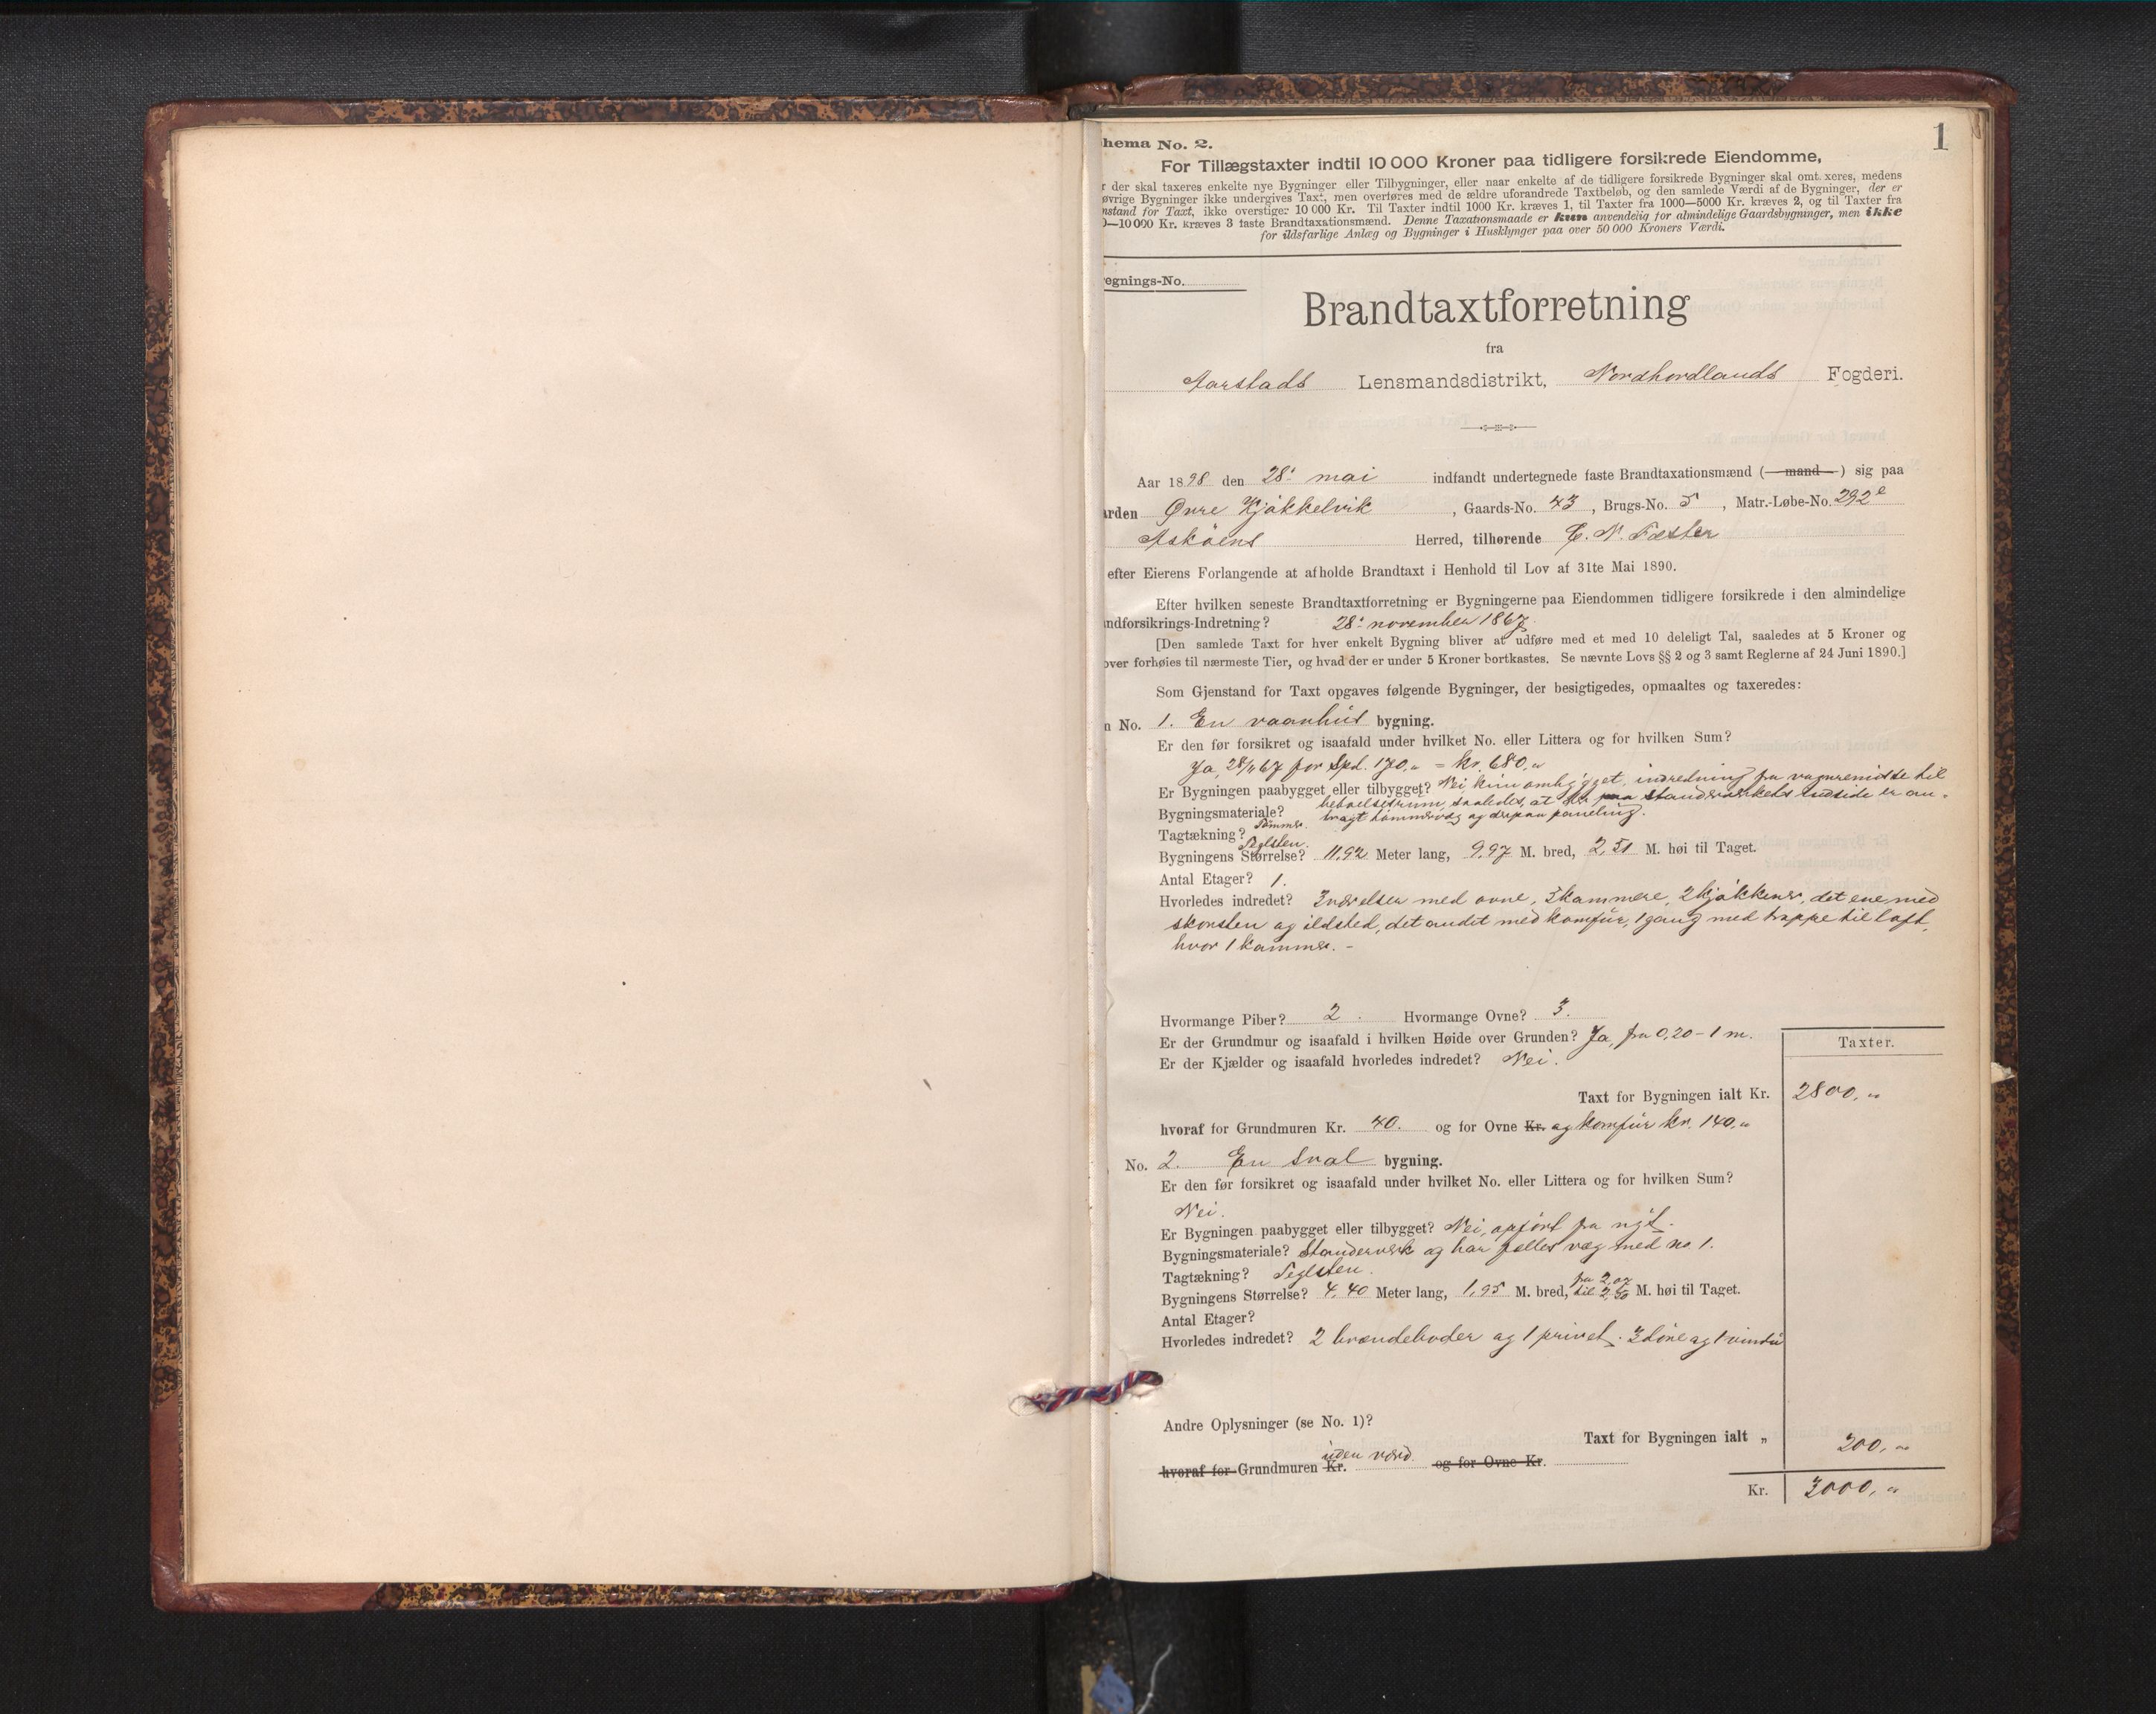 1
hema No. 2.
For Tillægstaxter indtil 10 000 Kroner paa tidligere forsikrede Eiendomme,
r der skal taxeres enkelte nye Bygninger eller Tilbygninger, eller naar enkelte af de tidligere forsikrede Bygninger skal omt.xeres, medens
øvrige Bygninger ikke undergives Taxt, men overføres med de ældre uforandrede Taxtbeløb, og den samlede Værdi af de Bygninger, der er
nstand for Taxt, ikke overstiger 10 000 Kr. Til Taxter indtil 1000 Kr. kræves 1, til Taxter fra 1000—5000 Kr. kræves 2, og til Taxter fra
0—10 000 Kr. kræves 3 faste Brandtaxationsmænd. Denne Taxationsmaade er kun anvendelig for almindelige Gaardsbygninger, men ikke
for ildsfarlige Anlæg og Bygninger i Husklynger paa over 50 000 Kroners Værdi.
egnings-No.
Brandtaxtforretning
fra
Aarstads Lensmandsdistrikt, Nordhordlands Fogderi.
Aar 1898 den 28: mai indfandt undertegnede faste Brandtaxationsmænd (mand) sig paa
arden Øvre Kjøkkelvik, Gaards-No. 43, Brugs-No. 5, Matr.-Løbe-No. 292e
Askøens Herred, tilhørende C. N. Fæster
efter Eierens Forlangende at afholde Brandtaxt i Henhold til Lov af 31te Mai 1890.
Efter hvilken seneste Brandtaxtforretning er Bygningerne paa Eiendommen tidligere forsikrede i den almindelige
ndforsikrings-Indretning? 28: november 1867.
[Den samlede Taxt for hver enkelt Bygning bliver at udføre med et med 10 deleligt Tal, saaledes at 5 Kroner og
over forhøies til nærmeste Tier, og hvad der er under 5 Kroner bortkastes. Se nævnte Lovs §§ 2 og 3 samt Reglerne af 24 Juni 1890.]
Som Gjenstand for Taxt opgaves følgende Bygninger, der besigtigedes, opmaaltes og taxeredes:
n No. 1. En vaanhus bygning.
Er den før forsikret og isaafald under hvilket No. eller Littera og for hvilken Sum?
Ja, 28/11 67 for Spd. 170,„ = kr. 680,„
Er Bygningen paabygget eller tilbygget? Nei, kun ombygget, indredning fra til
beboelsesrum, saaledes, at der paa standværkets indside er an-
Bygningsmateriale? bragt tømmervæg og derpaa paneling.
Tagtækning? Tømmer.
Seglsten.
Bygningens Størrelse? 11,92 Meter lang, 9,97 M. bred, 2,51 M. høi til Taget.
Antal Etager? 1.
Hvorledes indredet? 3 værelser med ovne, 3 kammere, 2 kjøkkener, det ene med
skorsten og ildsted, det andet med komfur, 1 gang med trappe til loft,
hvor 1 kammer. -
Hvormange Piber? 2. Hvormange Ovne? 3.
Er der Grundmur og isaafald i hvilken Høide over Grunden? Ja, fra 0,20 - 1 m.
Er der Kjælder og isaafald hvorledes indredet? Nei.
Taxter.
Taxt for Bygningen ialt Kr. 2800,„
hvoraf for Grundmuren Kr. 40. og for Ovne Kr. og komfur kr. 140,„
No. 2. En sval bygning.
Er den før forsikret og isaafald under hvilket No. eller Littera og for hvilken Sum?
Nei.
Er Bygningen paabygget eller tilbygget? Nei, opført fra nyt.
Bygningsmateriale? Standerverk og har fælles væg med no 1.
Tagtækning? Seglsten.
Bygningens Størrelse? 4,40 Meter lang, 1,95 M. bred, fra 2,07 til 2,50 M. høi til Taget.
Antal Etager?
Hvorledes indredet? 2 brændeboder og 1 privet. 3 døre og 1 vindu
Andre Oplysninger (se No. 1)?
Taxt for Bygningen ialt „ 200,„
hvoraf for Grundmuren Kr. uden værd. og for Ovne Kr.
Kr. 3000,„